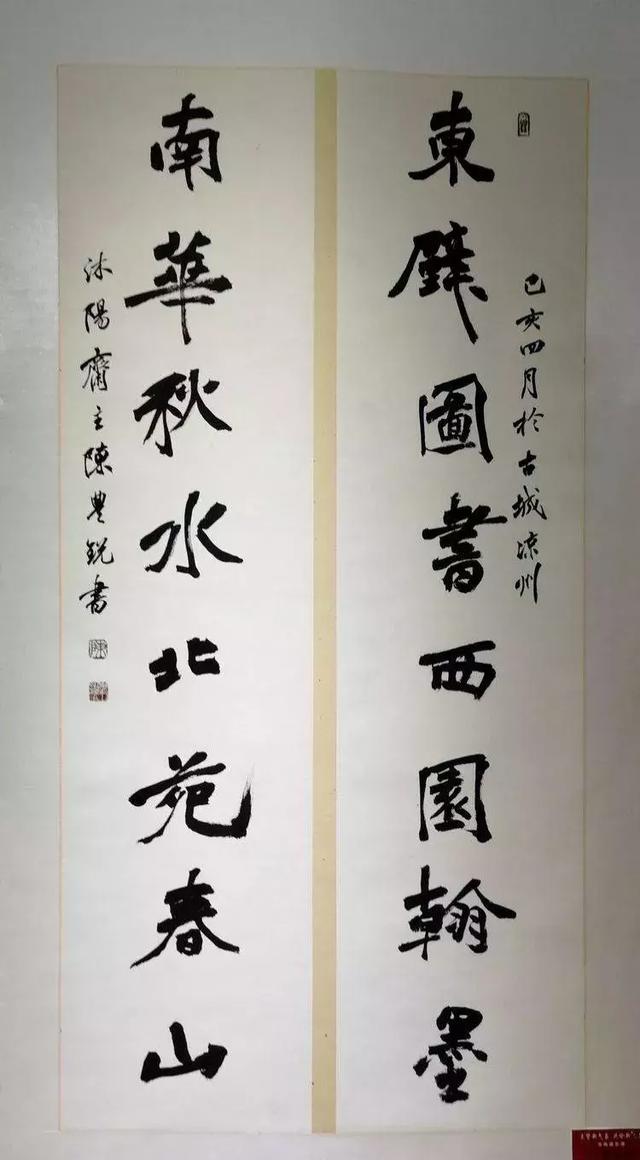 己亥四月於古城涼州
東壁圖書西園翰墨
南華秋水北苑春山
沐陽齋主陳豊銳書